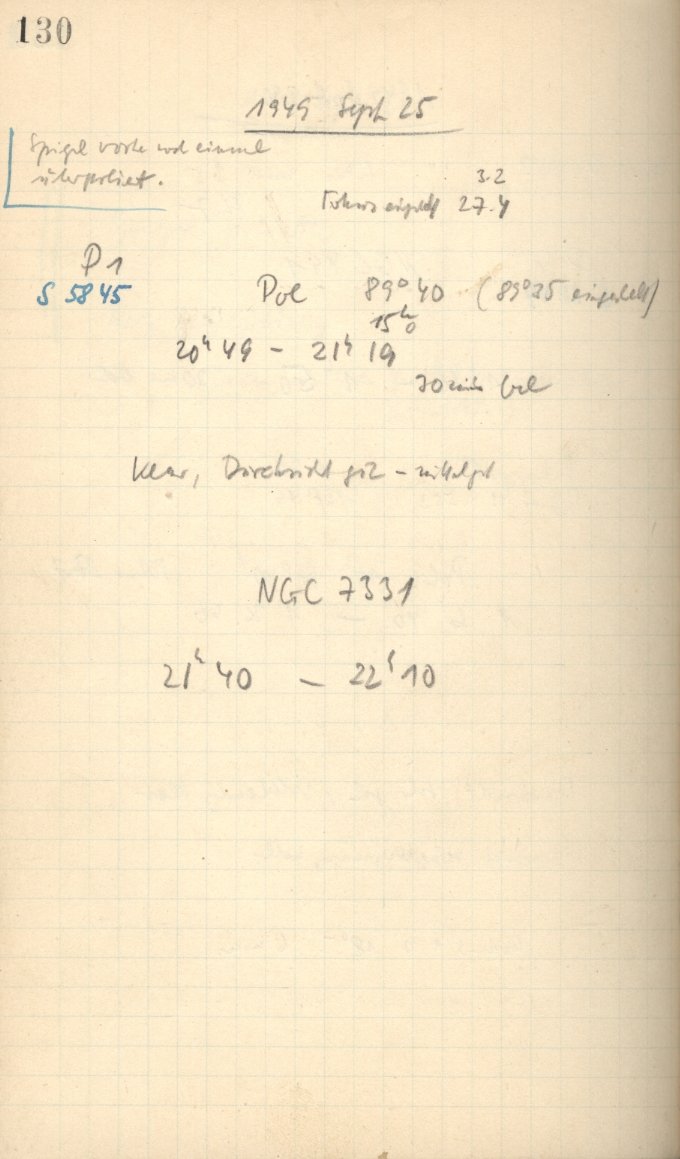 130
1949 Sept 25
Spiegel vorher noch einmal
überpoliert.
3.2
Fokus eingestellt 27.4
P1
S 5845
Pol 89° 40 (89° 35 eingestellt)
15ʰ0
20ʰ 49 – 21ʰ 19
30 min bel
Klar, Durchsicht gut – mittelgut
NGC 7331
21ʰ 40 – 22ʰ 10